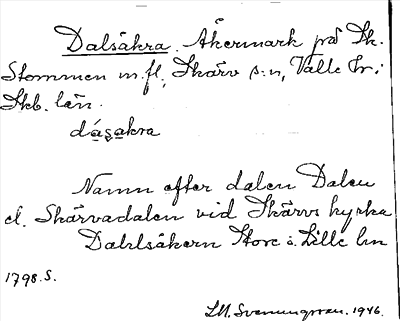 Dalsåkra. Åkermark på Sk.
Stommen m.fl., Skärv s:n, Valle hr;
Skb. län.
dásakra
Namn efter dalen Dalen
el. Skärvadalen vid Skärvs kyrka
Dahlsåkern Store o. Lille
1798. S.
L.M. Svenungsson. 1946.